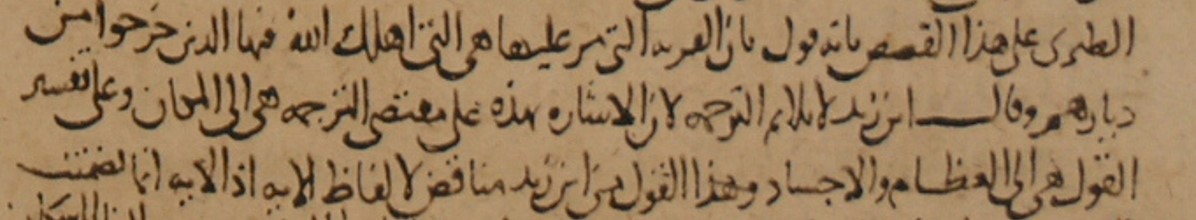 الطبرى على هذا القصص بانه قول بان القريه التى مر عليها هى التى اهلك الله فيها الذين خرجوا من
ديارهم وقال ابن زيد لا يلائم الترجمه لان الاشاره بهذه على مقتضى الترجمه هى الى المكان وعلى نفس
القول هى الى العظام والاجساد وهذا القول من ابن زيد مناقض لالفاظ الايه اذ الايه انما تضمنت